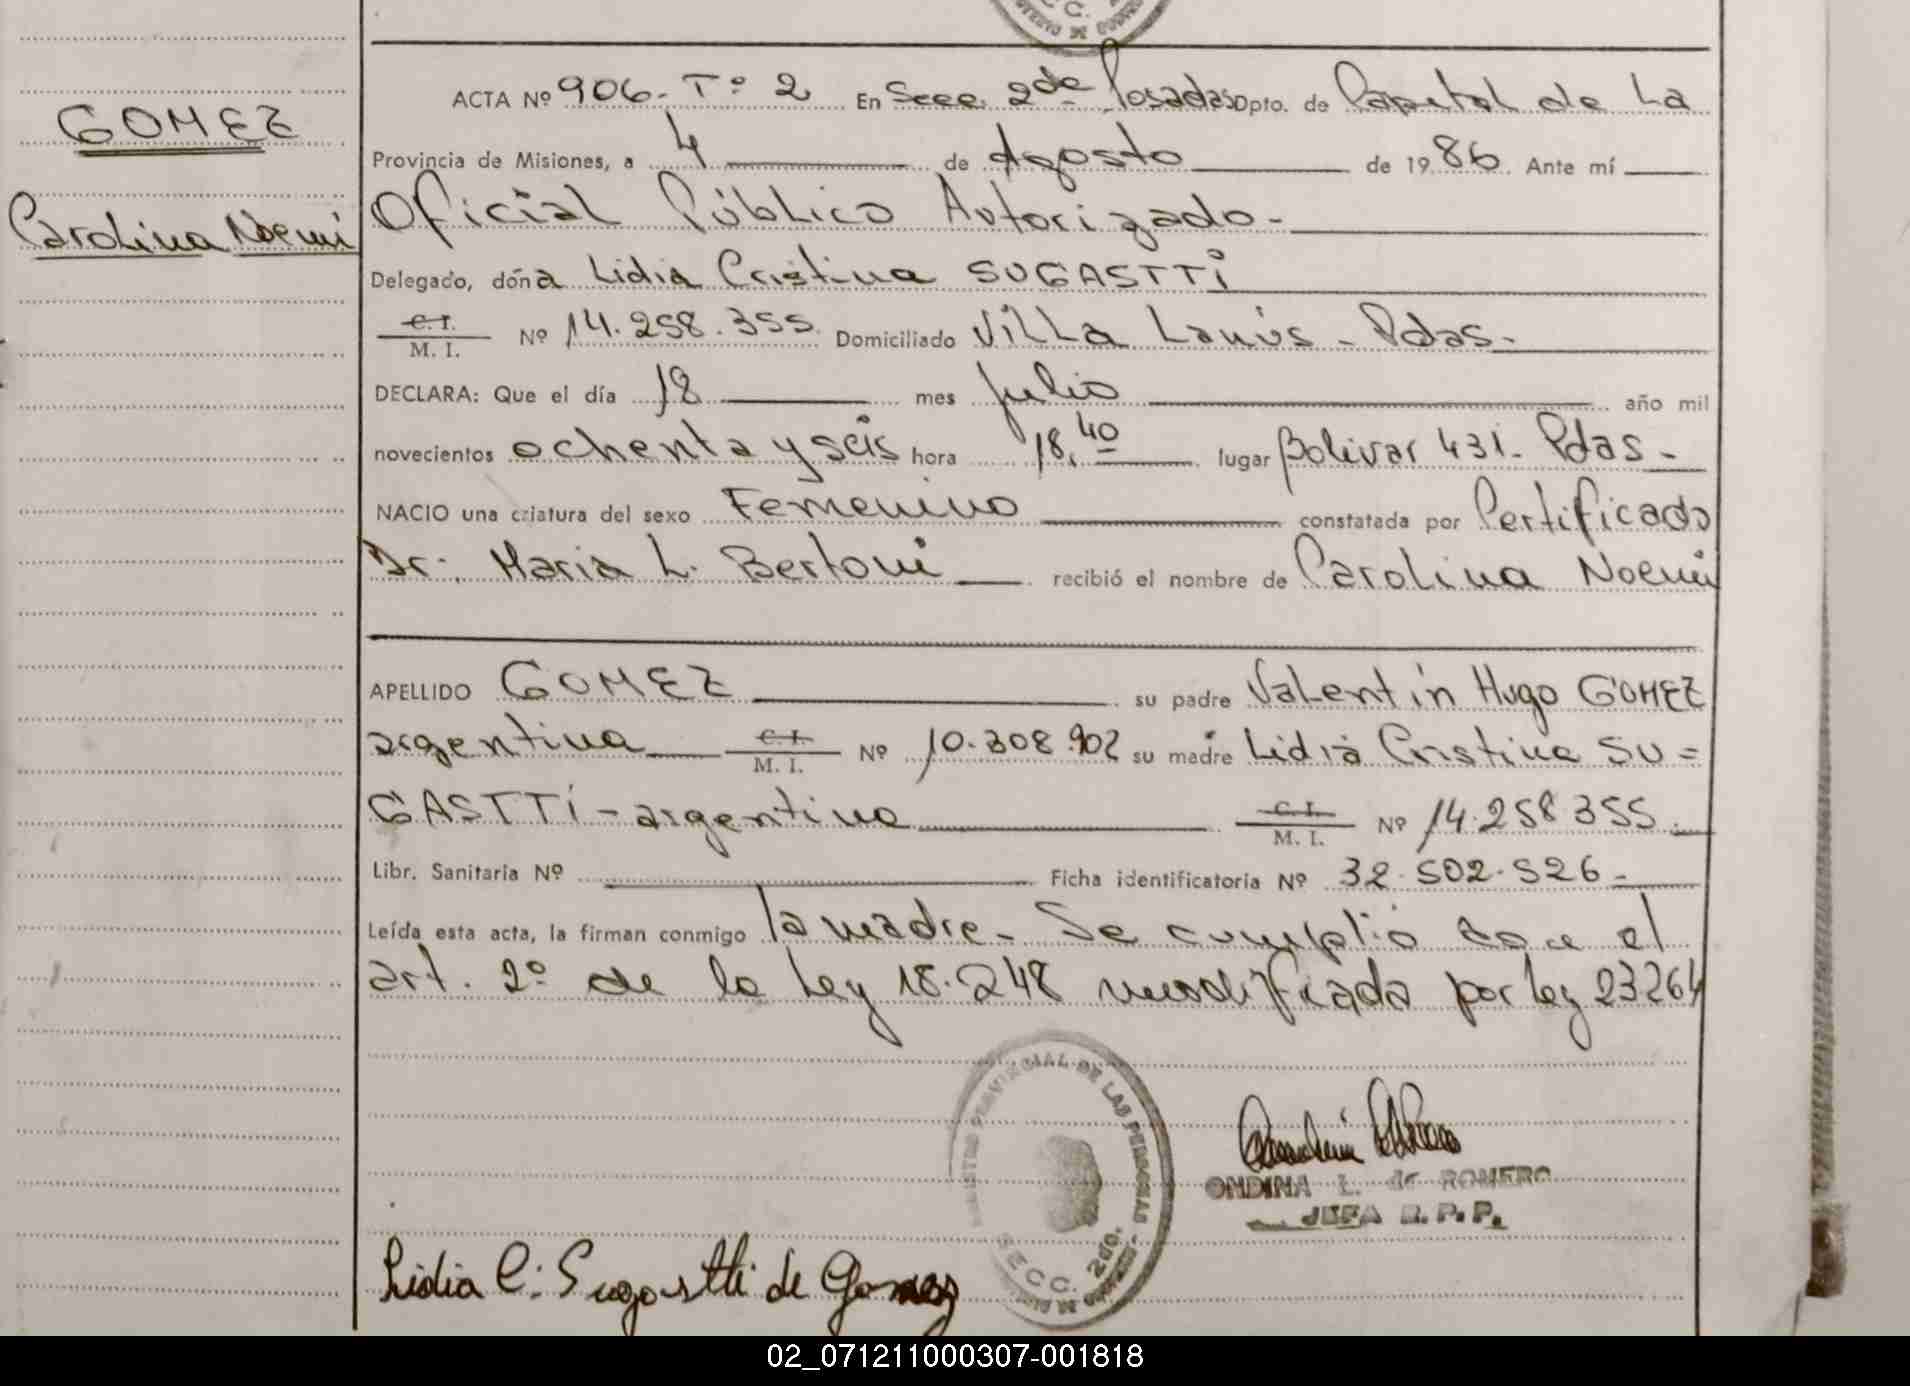 GOMEZ
Carolina Noemi
ACTA Nº 906- Tº 2 En Secc. 2da Posadas Dpto. de Capital de La
Provincia de Misiones, a 4 de Agosto de 1986. Ante mí
Oficial Público Autorizado-
Delegado, dóña Lidia Cristina SUGASTTI
C. I.
M. I. Nº 14.258.355. Domiciliado Villa Lanús - Pdas-
DECLARA: Que el día 18 mes julio año mil
novecientos ochenta y seis hora 18,40 lugar Bolivar 431- Pdas-
NACIO una criatura del sexo Femenino constatada por Certificado
Dr. Maria L. Bertoni recibió el nombre de Carolina Noemi
APELLIDO GOMEZ su padre Valentín Hugo GOMEZ
argentina C. I.
M. I. Nº 10.308.902 su madre Lidia Cristina SU=
GASTTI - argentina C. I.
M. I. Nº 14.258.355.
Libr. Sanitaria Nº Ficha identificatoria Nº 32.502.526-
Leída esta acta, la firman conmigo la madre- Se cumplió con el
art. 2º de la Ley 18.248 modificada por ley 23264
REGISTRO PROVINCIAL DE LAS PERSONAS
SECC. 2do.
ONDINA L. de ROMERO
JEFA R. P. P.
Lidia C. Sugastti de Gomez
02_071211000307-001818